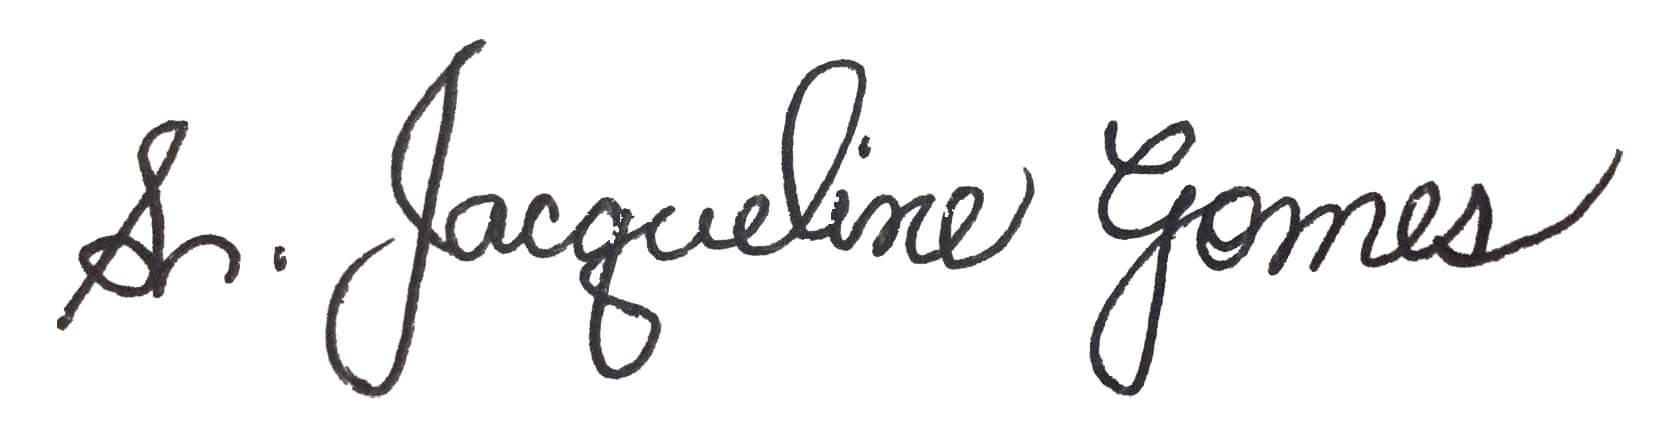 Sr. Jacqueline Gomes